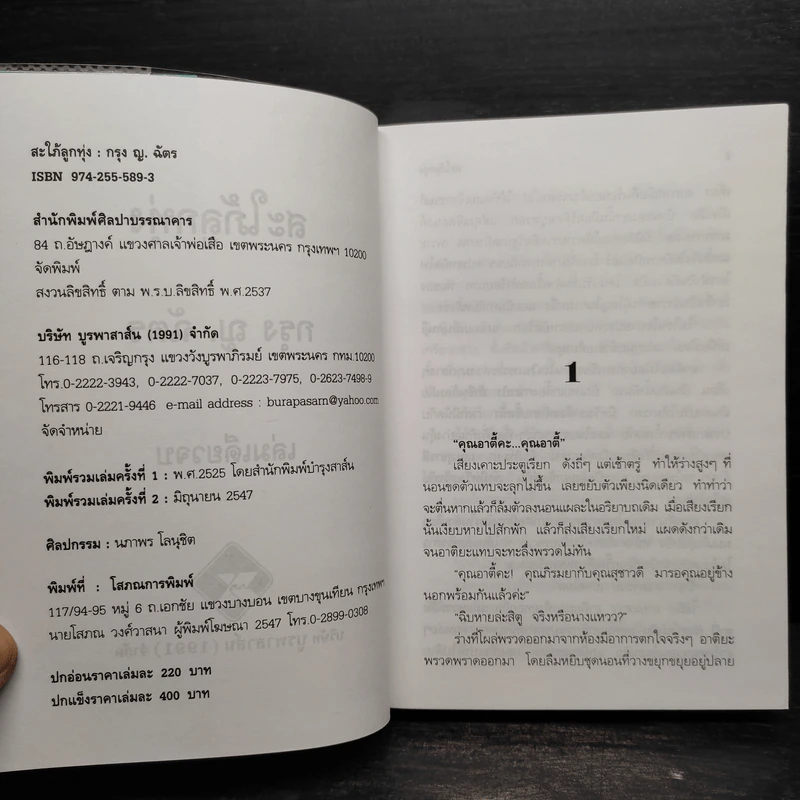 สะใภ้ลูกทุ่ง : กรุง ญ. ฉัตร
ISBN 974-255-589-3
สำนักพิมพ์ศิลปาบรรณาคาร
84 ถ.อัษฎางค์ แขวงศาลเจ้าพ่อเสือ เขตพระนคร กรุงเทพฯ 10200
จัดพิมพ์
สงวนลิขสิทธิ์ ตาม พ.ร.บ.ลิขสิทธิ์ พ.ศ.2537
บริษัท บูรพาสาส์น (1991) จำกัด
116-118 ถ.เจริญกรุง แขวงวังบูรพาภิรมย์ เขตพระนคร กทม.10200
โทร.0-2222-3943, 0-2222-7037, 0-2223-7975, 0-2623-7498-9
โทรสาร 0-2221-9446 e-mail address : burapasarn@yahoo.com
จัดจำหน่าย
พิมพ์รวมเล่มครั้งที่ 1 : พ.ศ.2525 โดยสำนักพิมพ์บำรุงสาส์น
พิมพ์รวมเล่มครั้งที่ 2 : มิถุนายน 2547
ศิลปกรรม : นภาพร โลนุชิต
พิมพ์ที่ : โสภณการพิมพ์
117/94-95 หมู่ 6 ถ.เอกชัย แขวงบางบอน เขตบางขุนเทียน กรุงเทพฯ
นายโสภณ วงศ์วาสนา ผู้พิมพ์โฆษณา 2547 โทร.0-2899-0308
ปกอ่อนราคาเล่มละ 220 บาท
ปกแข็งราคาเล่มละ 400 บาท
1
“คุณอาตี้คะ...คุณอาตี้”
เสียงเคาะประตูเรียก ดังถี่ๆ แต่เช้าตรู่ ทำให้ร่างสูงๆ ที่
นอนขดตัวแทบจะลุกไม่ขึ้น เลยขยับตัวเพียงนิดเดียว ทำท่าว่า
จะตื่นหากแล้วก็ล้มตัวลงนอนแผละในอริยาบถเดิม เมื่อเสียงเรียก
นั้นเงียบหายไปสักพัก แล้วก็ส่งเสียงเรียกใหม่ แผดดังกว่าเดิม
จนอาติยะแทบจะทะลึ่งพรวดไม่ทัน
“คุณอาตี้คะ! คุณภิรมยากับคุณสุชาวดี มารอคุณอยู่ข้าง
นอกพร้อมกันแล้วค่ะ”
“ฉิบหายล่ะสิตู จริงหรือนางแหวว?”
ร่างที่โผล่พรวดออกมาจากห้องมีอาการตกใจจริงๆ อาติยะ
พรวดพราดออกมา โดยลืมหยิบชุดนอนที่วางขยุกขยุยอยู่ปลาย